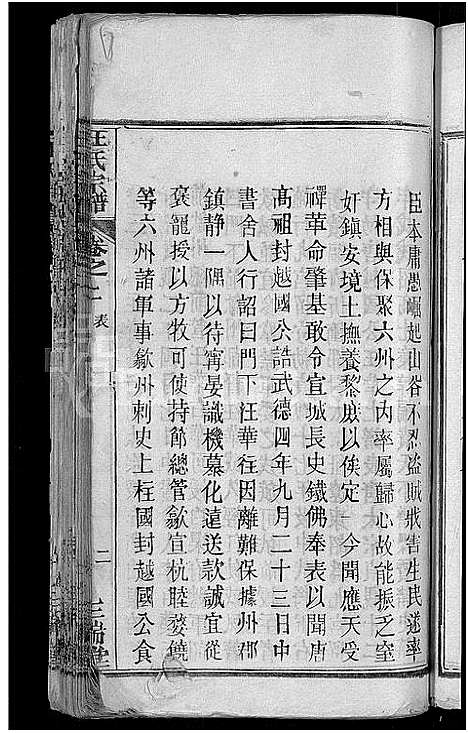 臣本庸愚崛起山谷不忍盜賊戕害生民遂率
方相與保聚六州之內率屬歸心故能振乏窒
奸鎮安境土撫養黎庶以俟定一今聞應天受
禪革命肇基敢令宣城長史鐵佛奉表以聞唐
高祖封越國公誥武德四年九月二十三日中
書舍人行詔曰門下汪華往因離難保據州郡
鎮靜一隅以待寧晏識機慕化遠送款誠宜從
褒寵授以方牧可使持節總管歙宣杭睦婺饒
等六州諸軍事歙州刺史上柱國封越國公食
汪氏宗譜
卷之一
表
二
三瑞堂